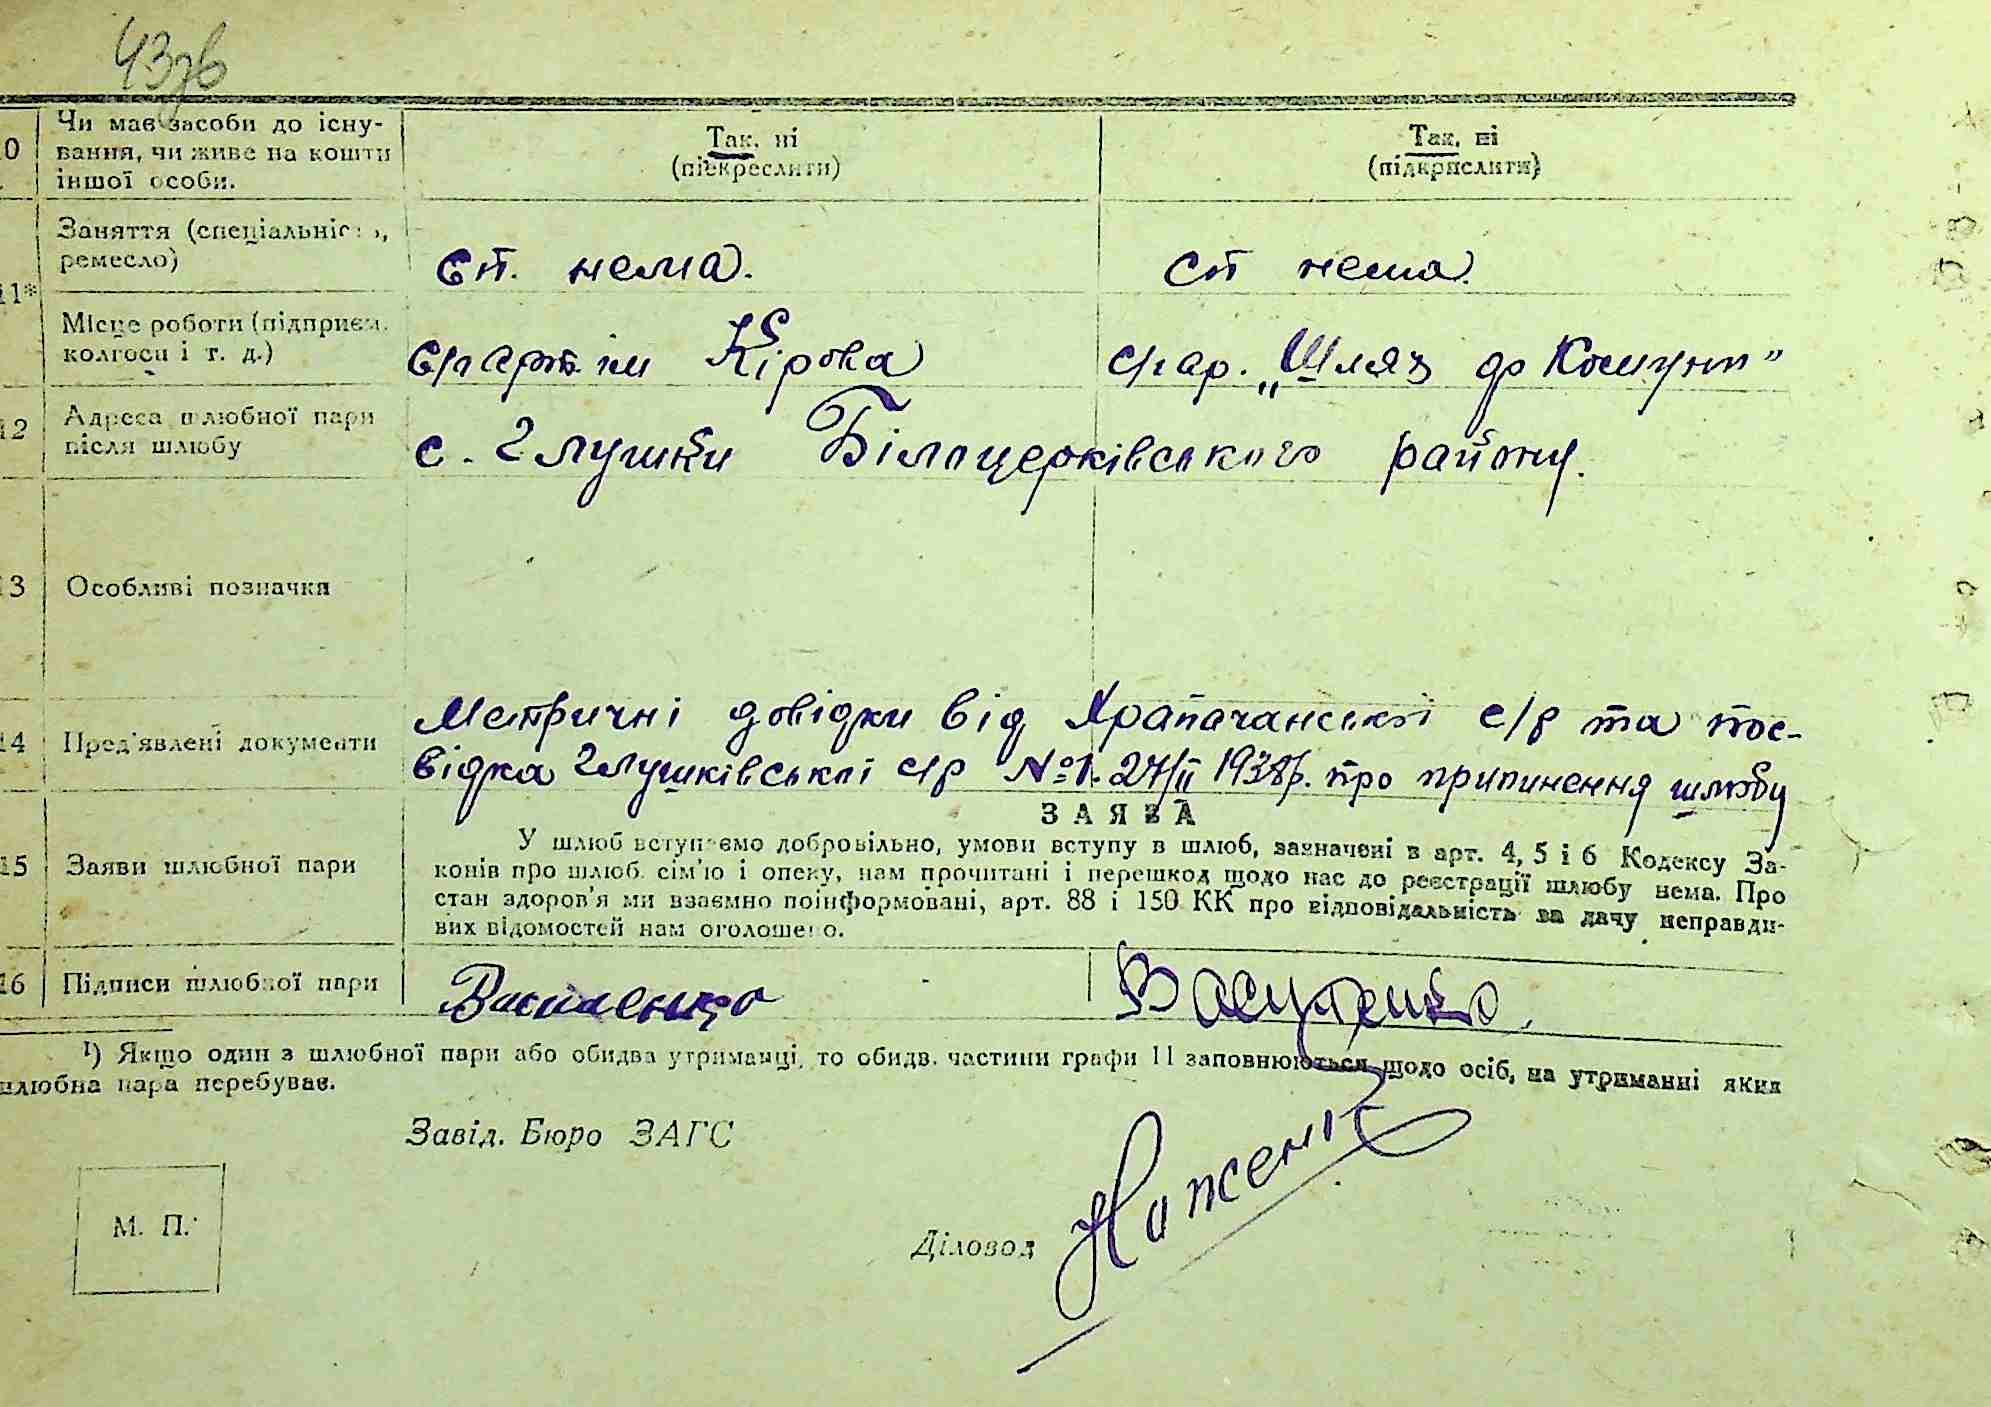 43зв
10 Чи має засоби до існу-
вання, чи живе на кошти
іншої особи.
Так, ні
(підкреслити)
Так, ні
(підкрислити)
Заняття (спеціальність,
ремесло)
сп. нема.
сп нема.
11*
Місце роботи (підприєм.
колгосп і т. д.)
с/г арт. ім Кірова
с/г ар. „Шлях до Комуни"
12 Адреса шлюбної пари
після шлюбу
с. Глушки Білоцерківського району.
13 Особливі позначки
14 Пред'явлені документи
Метричні довідки від Храпачанської с/р та пос-
відка Глушківської с/р №1. 27/II 1938р. про припинення шлюбу
15 Заяви шлюбної пари
ЗАЯВА
У шлюб вступаємо добровільно, умови вступу в шлюб, зазначені в арт. 4, 5 і 6 Кодексу За-
конів про шлюб. сім'ю і опеку, нам прочитані і перешкод щодо нас до реєстрації шлюбу нема. Про
стан здоров'я ми взаємно поінформовані, арт. 88 і 150 КК про відповідальність за дачу неправди-
вих відомостей нам оголошено.
16 Підписи шлюбної пари
Василенко
¹) Якщо один з шлюбної пари або обидва утриманці, то обидв. частини графи 11 заповнюються щодо осіб, на утриманні яких
шлюбна пара перебуває.
Завід. Бюро ЗАГС
М. П.
Діловод